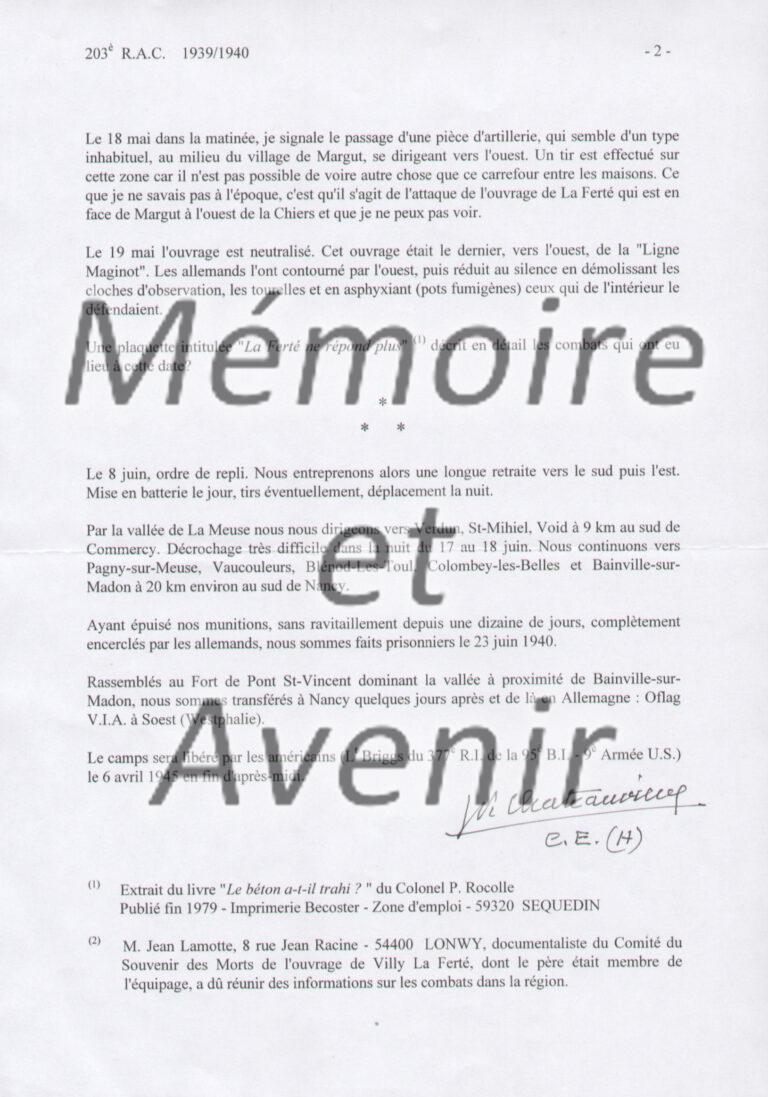 203è R.A.C. 1939/1940
- 2 -
Le 18 mai dans la matinée, je signale le passage d'une pièce d'artillerie, qui semble d'un type
inhabituel, au milieu du village de Margut, se dirigeant vers l'ouest. Un tir est effectué sur
cette zone car il n'est pas possible de voire autre chose que ce carrefour entre les maisons. Ce
que je ne savais pas à l'époque, c'est qu'il s'agit de l'attaque de l'ouvrage de La Ferté qui est en
face de Margut à l'ouest de la Chiers et que je ne peux pas voir.
Le 19 mai l'ouvrage est neutralisé. Cet ouvrage était le dernier, vers l'ouest, de la "Ligne
Maginot". Les allemands l'ont contourné par l'ouest, puis réduit au silence en démolissant les
cloches d'observation, les tourelles et en asphyxiant (pots fumigènes) ceux qui de l'intérieur le
défendaient.
Une plaquette intitulée "La Ferté ne répond plus" (1) décrit en détail les combats qui ont eu
lieu à cette date?
Mémoire
*
* *
Le 8 juin, ordre de repli. Nous entreprenons alors une longue retraite vers le sud puis l'est.
Mise en batterie le jour, tirs éventuellement, déplacement la nuit.
Par la vallée de La Meuse nous nous dirigeons vers Verdun, St-Mihiel, Void à 9 km au sud de
Commercy. Décrochage très difficile dans la nuit du 17 au 18 juin. Nous continuons vers
Pagny-sur-Meuse, Vaucouleurs, Blénod-Les-Toul, Colombey-les-Belles et Bainville-sur-
Madon à 20 km environ au sud de Nancy.
et
Ayant épuisé nos munitions, sans ravitaillement depuis une dizaine de jours, complètement
encerclés par les allemands, nous sommes faits prisonniers le 23 juin 1940.
Rassemblés au Fort de Pont St-Vincent dominant la vallée à proximité de Bainville-sur-
Madon, nous sommes transférés à Nancy quelques jours après et de là en Allemagne : Oflag
V.I.A. à Soest (Westphalie).
Avenir
Le camps sera libéré par les américains (Lt Briggs du 377e R.I. de la 95e B.I. - 9e Armée U.S.)
le 6 avril 1945 en fin d'après-midi.
C.E. (H)
(1) Extrait du livre "Le béton a-t-il trahi ? " du Colonel P. Rocolle
Publié fin 1979 - Imprimerie Becoster - Zone d'emploi - 59320 SEQUEDIN
(2) M. Jean Lamotte, 8 rue Jean Racine - 54400 LONWY, documentaliste du Comité du
Souvenir des Morts de l'ouvrage de Villy La Ferté, dont le père était membre de
l'équipage, a dû réunir des informations sur les combats dans la région.